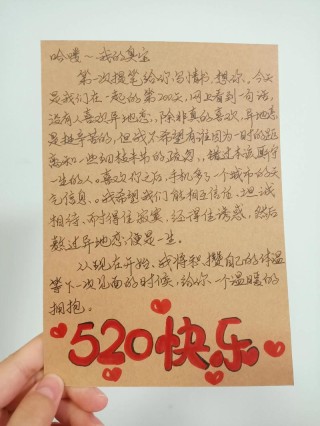 哈喽～我的臭宝
第一次提笔给你写情书，想你，今天
是我们在一起的第200天，网上看到一句话，
没有人喜欢异地恋，除非真的喜欢，异地恋
是挺辛苦的，但我不希望有谁因为一时的距
离和一些细枝末节的疏忽，错过本该厮守
一生的人。喜欢你之后，手机多了一个城市的天
气信息。我希望我们能相互信任、坦诚
相待、耐得住寂寞，经得住诱惑，然后
熬过异地恋，便是一生。
从现在开始，我将积攒自己的体温
等下一次见面的时候，给你一个温暖的
拥抱。
520快乐